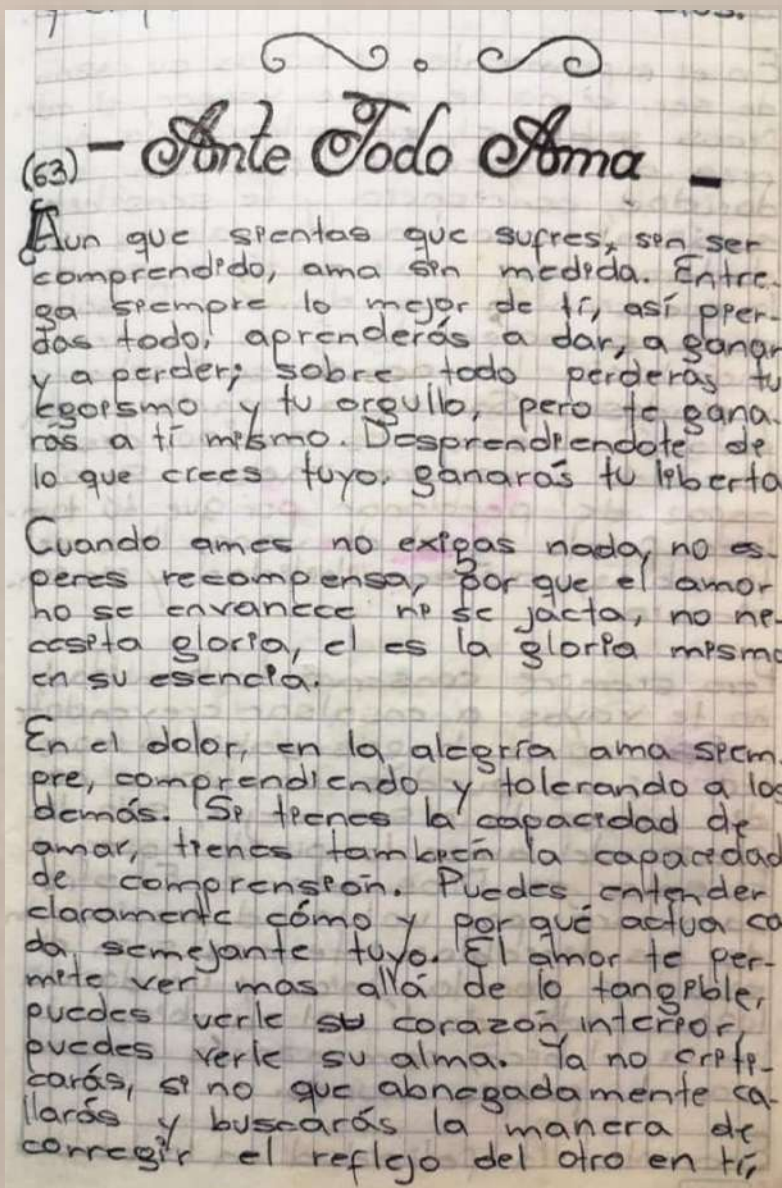 (63) - Ante Todo Ama -
Aun que sientas que sufres, sin ser
comprendido, ama sin medida. Entre-
ga siempre lo mejor de tí, así pier-
das todo, aprenderás a dar, a ganar
y a perder; sobre todo perderás tu
Egoismo y tu orgullo, pero te gana-
rás a tí mismo. Desprendiendote de
lo que crees tuyo, ganarás tu liberta
Cuando ames no exigas nada, no es-
peres recompensa, por que el amor
no se envanece ni se jacta, no ne-
cesita gloria, el es la gloria misma
en su esencia.
En el dolor, en la alegría ama siem-
pre, comprendiendo y tolerando a los
demás. Si tienes la capacidad de
amar, tienes también la capacidad
de comprensión. Puedes entender
claramente cómo y por qué actua ca
da semejante tuyo. El amor te per-
mite ver mas allá de lo tangible,
puedes verle su corazón interior,
puedes verle su alma. Ya no criti-
carás, si no que abnegadamente ca-
llarás y buscarás la manera de
corregir el reflejo del otro en tí,